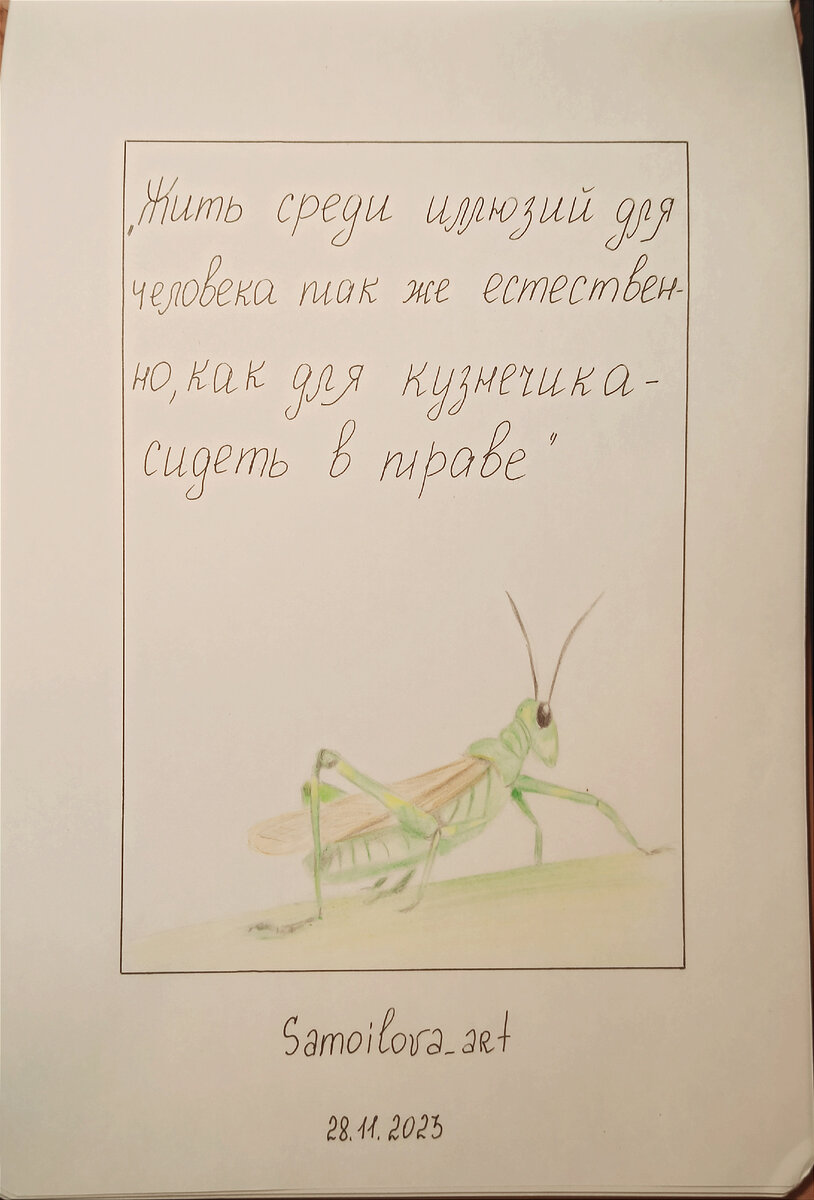 „Жить среди иллюзий для
человека так же естествен-
но, как для кузнечика -
сидеть в траве"
Samoilova_art
28.11.2023